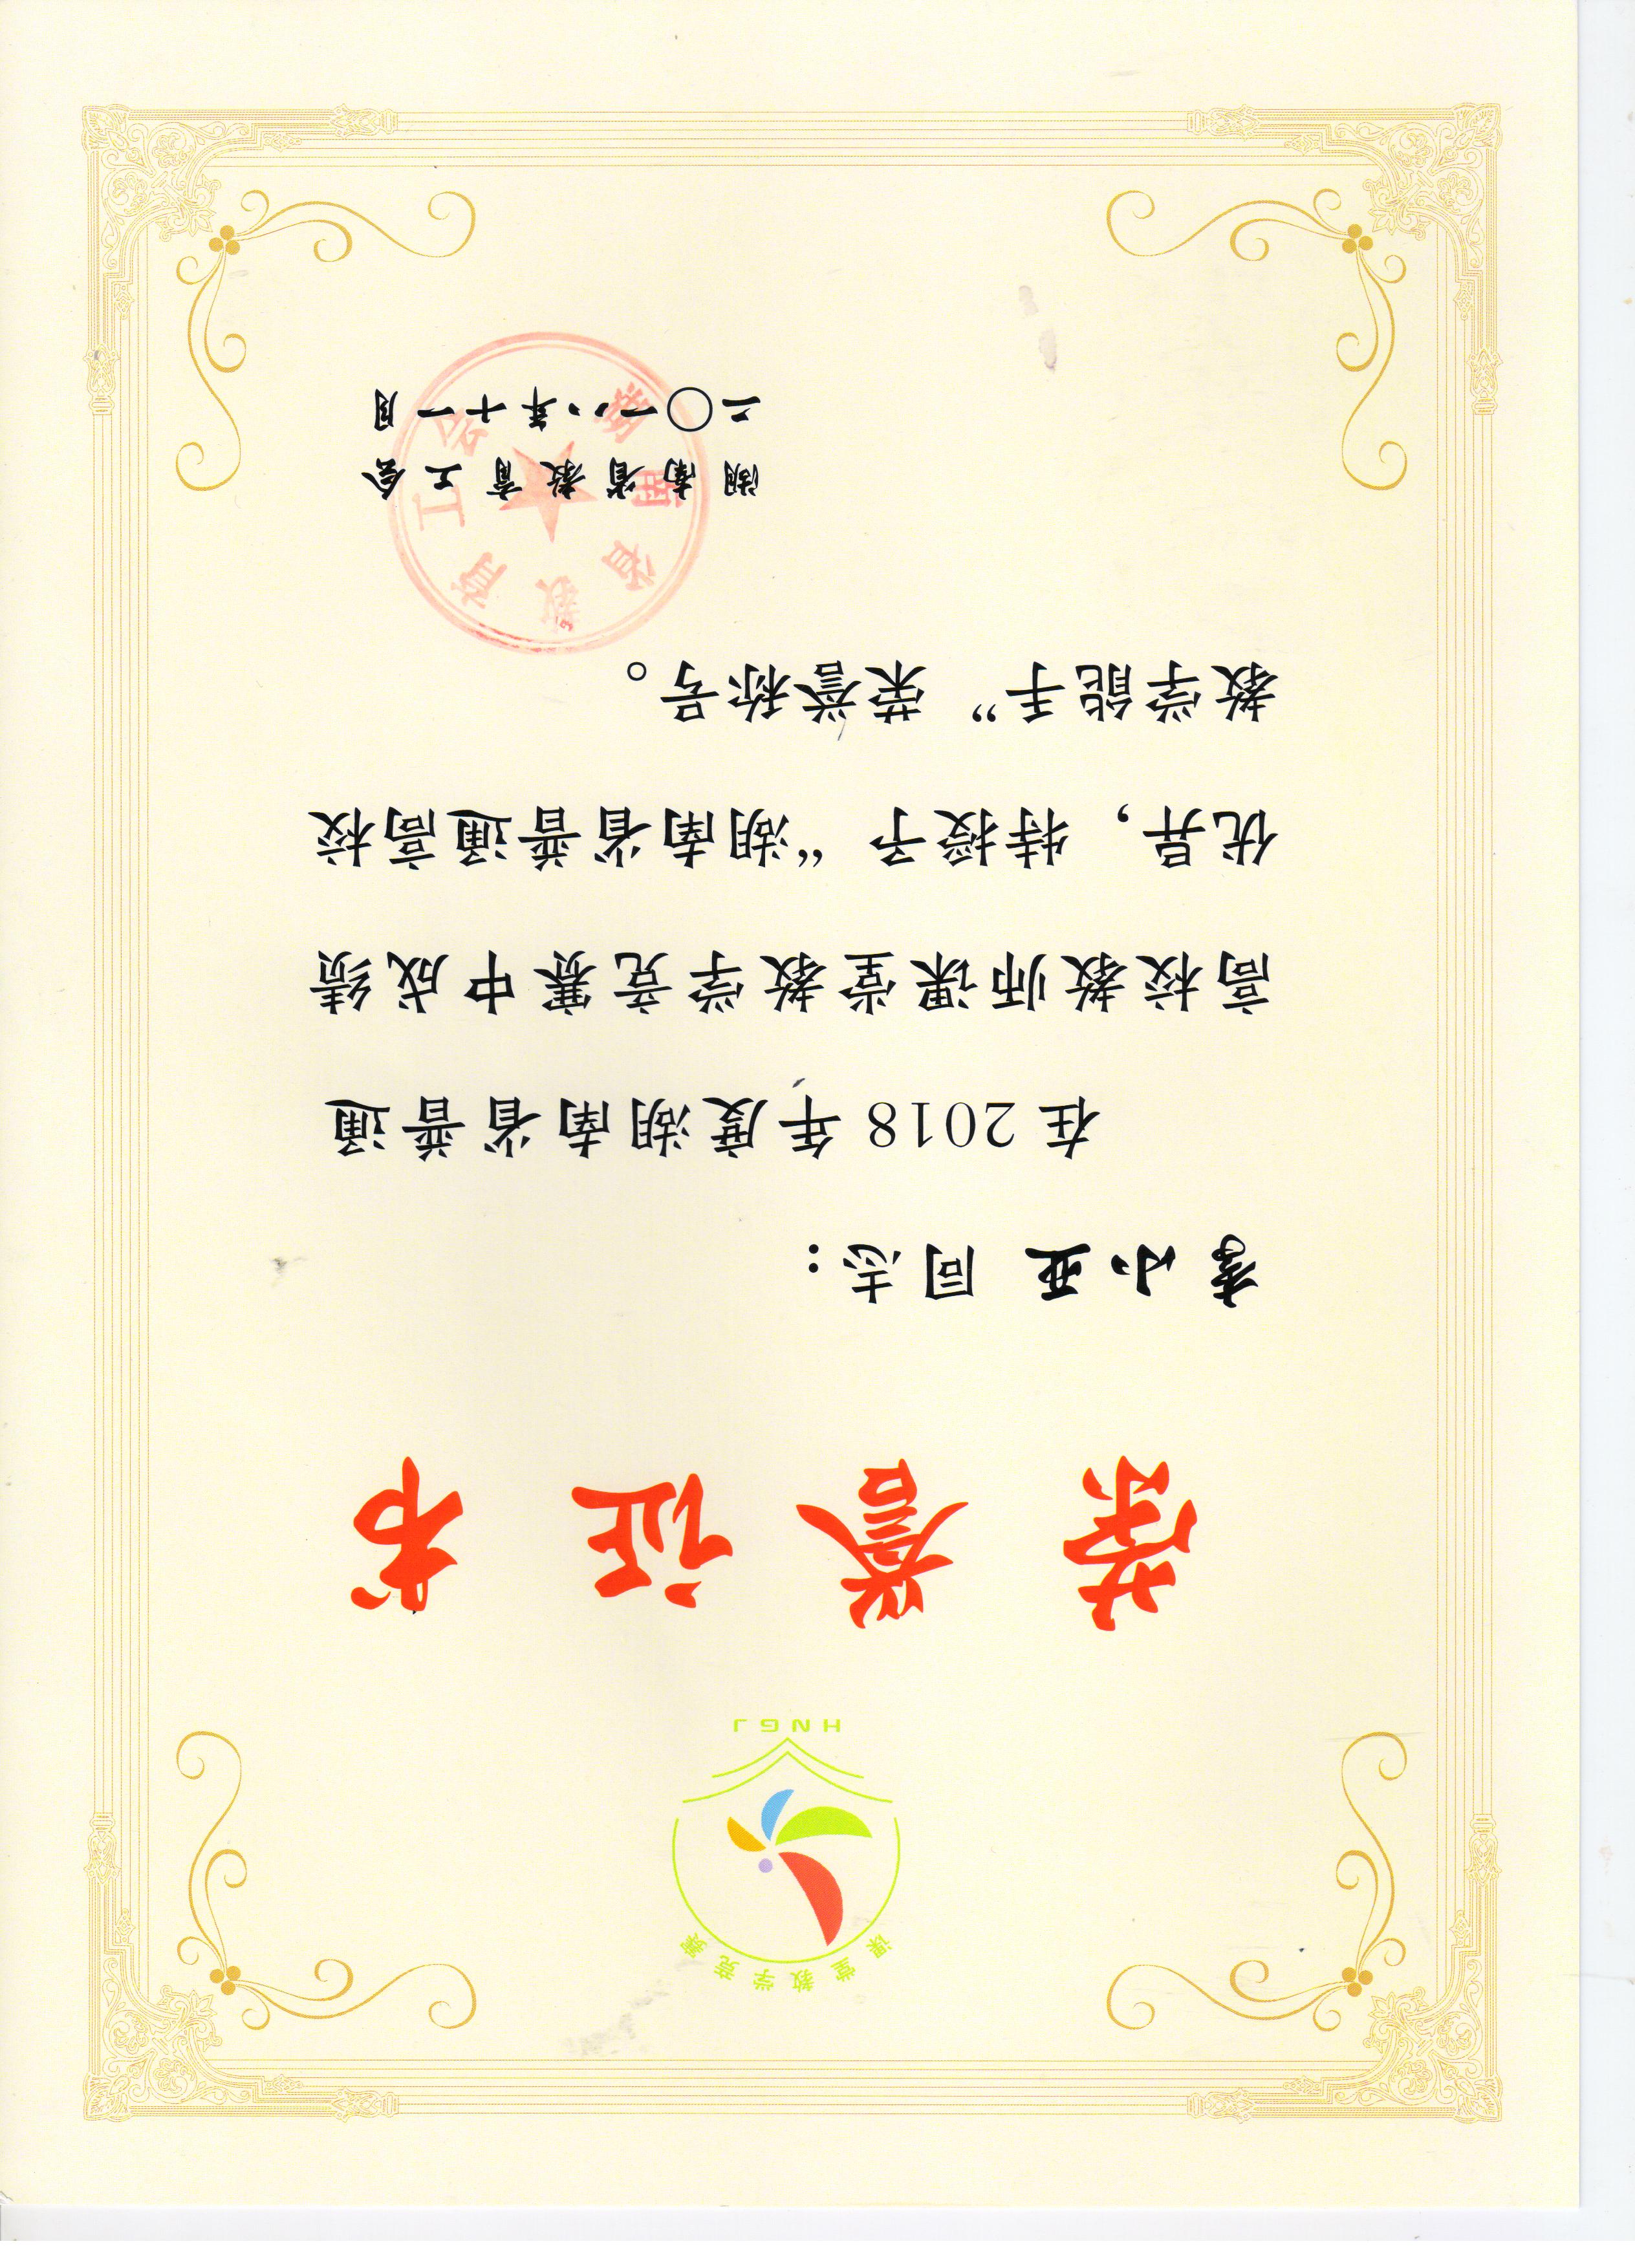 课堂教学竞赛
HNGJ
荣誉证书
李小亚 同志：
在2018年度湖南省普通
高校教师课堂教学竞赛中成绩
优异，特授予“湖南省普通高校
教学能手”荣誉称号。
湖南省教育工会
二〇一八年十一月
湖南省教育工会